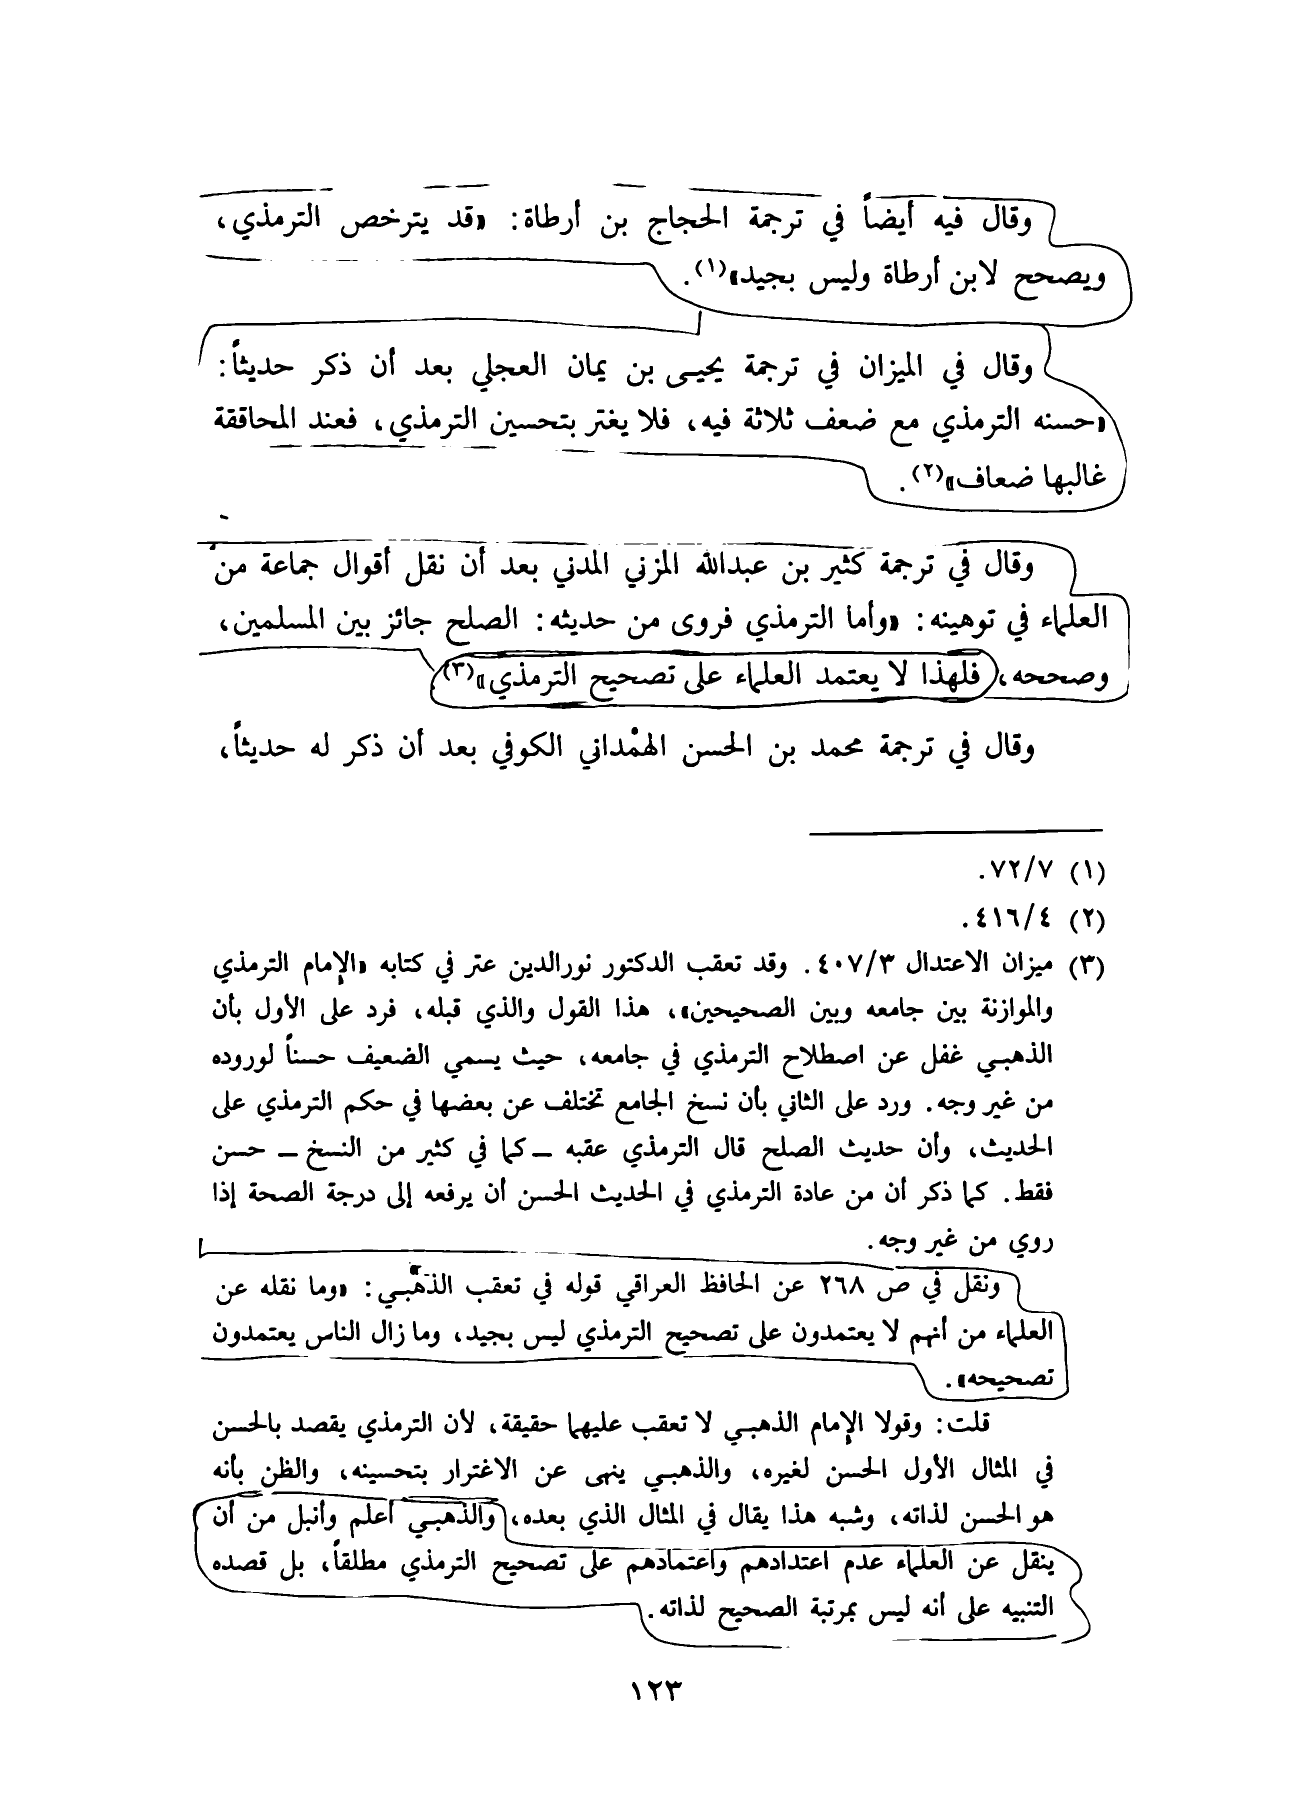 وقال فيه أيضاً في ترجمة الحجاج بن أرطاة: «قد يترخص الترمذي،
ويصحح لابن أرطاة وليس بجيد»(١).
وقال في الميزان في ترجمة يحيـى بن يمان العجلي بعد أن ذكر حديثاً:
«حسنه الترمذي مع ضعف ثلاثة فيه، فلا يغتر بتحسين الترمذي، فعند المحاققة
غالبها ضعاف»(٢).
وقال في ترجمة كثير بن عبدالله المزني المدني بعد أن نقل أقوال جماعة من
العلماء في توهينه: «وأما الترمذي فروى من حديثه: الصلح جائز بين المسلمين،
وصححه، فلهذا لا يعتمد العلماء على تصحيح الترمذي»(٣)
وقال في ترجمة محمد بن الحسن الهمْداني الكوفي بعد أن ذكر له حديثاً،
(١) ٧٢/٧.
(٢) ٤١٦/٤.
(٣) ميزان الاعتدال ٤٠٧/٣. وقد تعقب الدكتور نورالدين عتر في كتابه «الإمام الترمذي
والموازنة بين جامعه وبين الصحيحين»، هذا القول والذي قبله، فرد على الأول بأن
الذهبـي غفل عن اصطلاح الترمذي في جامعه، حيث يسمي الضعيف حسناً لوروده
من غير وجه. ورد على الثاني بأن نسخ الجامع تختلف عن بعضها في حكم الترمذي على
الحديث، وأن حديث الصلح قال الترمذي عقبه ــ كما في كثير من النسخ ــ حسن
فقط. كما ذكر أن من عادة الترمذي في الحديث الحسن أن يرفعه إلى درجة الصحة إذا
روي من غير وجه.
ونقل في ص ٢٦٨ عن الحافظ العراقي قوله في تعقب الذهبـي: «وما نقله عن
العلماء من أنهم لا يعتمدون على تصحيح الترمذي ليس بجيد، وما زال الناس يعتمدون
تصحيحه».
قلت: وقولا الإمام الذهبـي لا تعقب عليهما حقيقة، لأن الترمذي يقصد بالحسن
في المثال الأول الحسن لغيره، والذهبـي ينهى عن الاغترار بتحسينه، والظن بأنه
هو الحسن لذاته، وشبه هذا يقال في المثال الذي بعده، والذهبـي أعلم وأنبل من أن
ينقل عن العلماء عدم اعتدادهم واعتمادهم على تصحيح الترمذي مطلقاً، بل قصده
التنبيه على أنه ليس بمرتبة الصحيح لذاته.
١٢٣